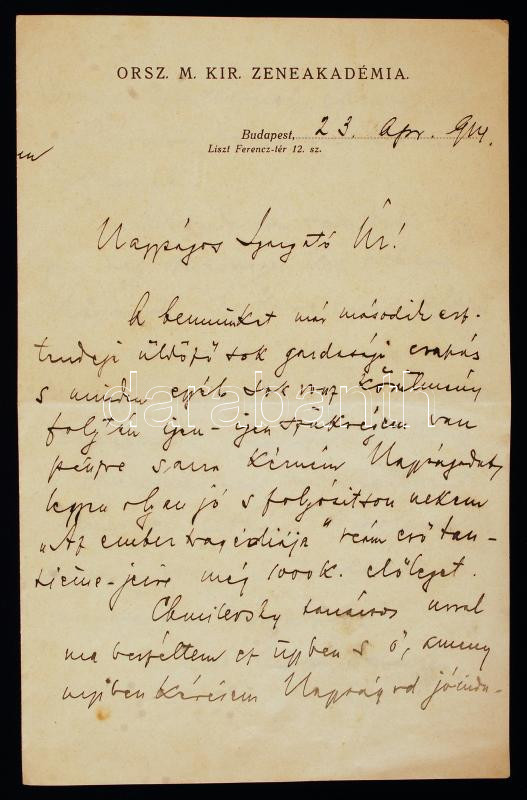 ORSZ. M. KIR. ZENEAKADÉMIA.
Budapest, 23. Apr. 914.
Liszt Ferencz-tér 12. sz.
Nagyságos Igazgató Úr!
A bennünket már második esz-
tendeje üldöző sok gazdasági csapás
s minden egyéb sok rossz körülmény
folytán igen-igen szükségem van
pénzre s arra kérném Nagyságodat,
legyen olyan jó s folyósítson nekem
„Az ember tragédiája" reám eső tan-
tième-jeire még 1000 k. előleget.
tanácsos úrral
ma beszéltem ez ügyben s ő, ameny
nyiben kérésem Nagyságod jóindu-
darabanth